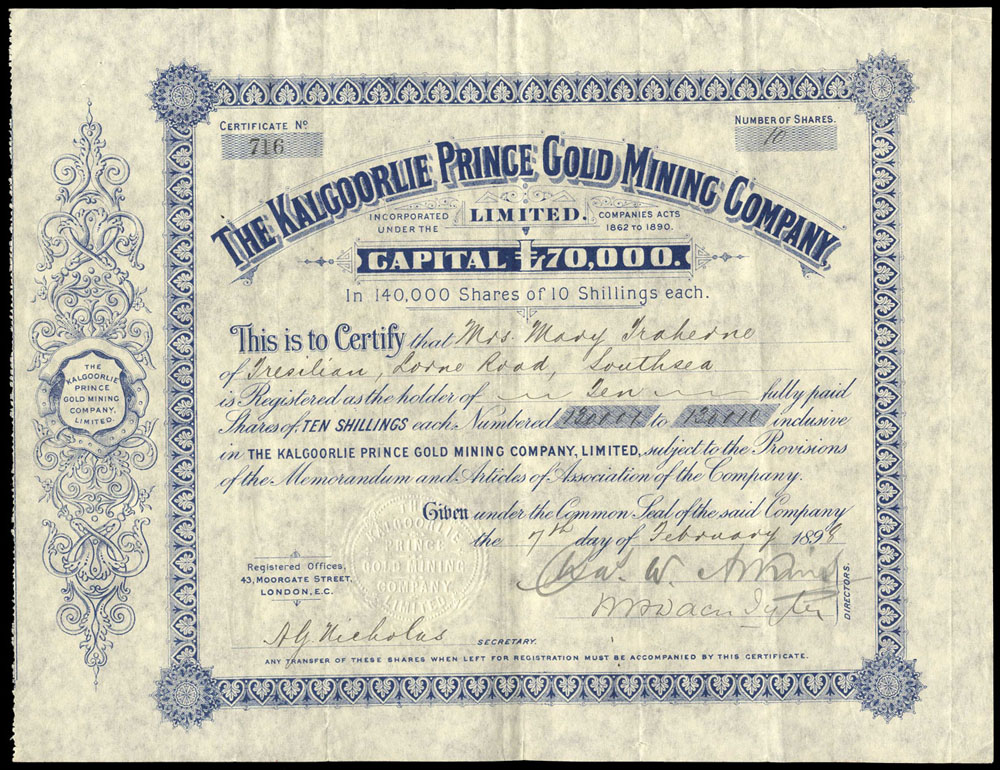 CERTIFICATE No
716
NUMBER OF SHARES.
10
THE KALGOORLIE PRINCE GOLD MINING COMPANY,
INCORPORATED UNDER THE
LIMITED.
COMPANIES ACTS 1862 TO 1890.
CAPITAL £70,000.
In 140,000 Shares of 10 Shillings each.
This is to Certify that Mrs. Mary Traherne
of Tresilian, Lorne Road, Southsea
is Registered as the holder of Ten fully paid
Shares of TEN SHILLINGS each Numbered to inclusive
in THE KALGOORLIE PRINCE GOLD MINING COMPANY, LIMITED, subject to the Provisions
of the Memorandum and Articles of Association of the Company.
Given under the Common Seal of the said Company
the 7th day of February 1898
THE
KALGOORLIE
PRINCE
GOLD MINING
COMPANY,
LIMITED.
THE
KALGOORLIE
PRINCE
GOLD MINING
COMPANY
LIMITED
Registered Offices,
43, MOORGATE STREET,
LONDON, E.C.
Chas. W.
DIRECTORS.
A G Nicholas
SECRETARY.
ANY TRANSFER OF THESE SHARES WHEN LEFT FOR REGISTRATION MUST BE ACCOMPANIED BY THIS CERTIFICATE.